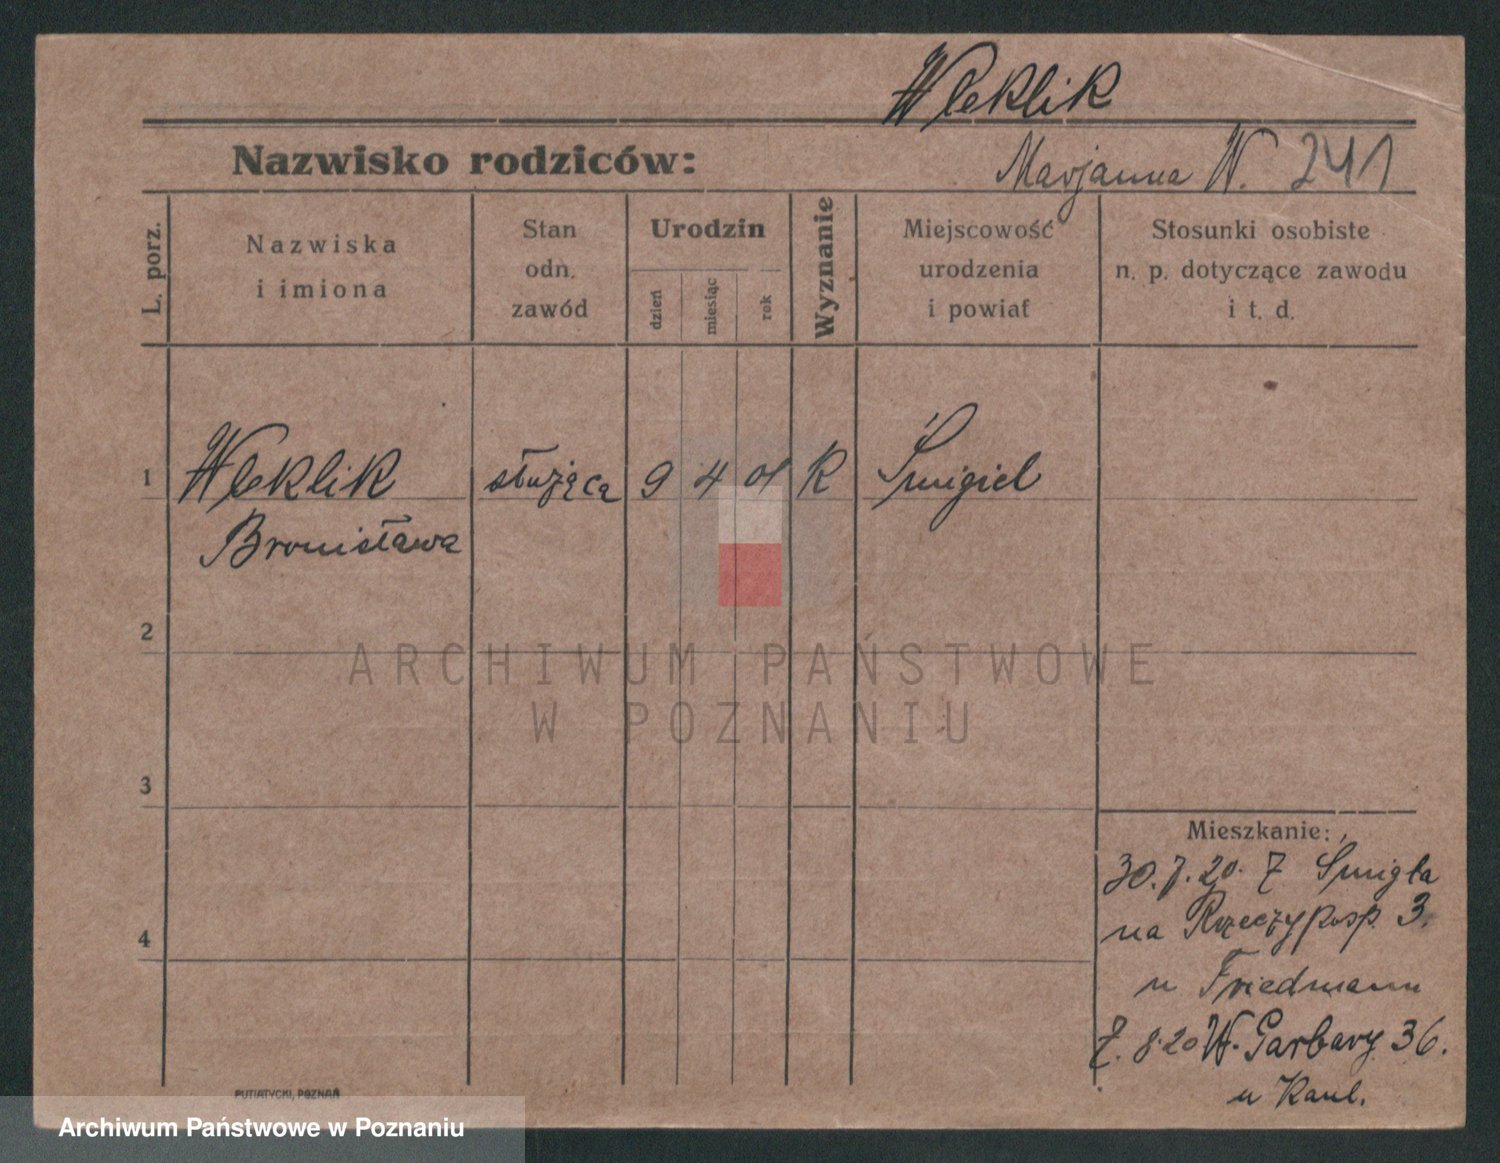 Weklik
Nazwisko rodziców: Marjanna W. 241
L. porz.
Nazwiska
i imiona
Stan
odn.
zawód
Urodzin
dzień
miesiąc
rok
Wyznanie
Miejscowość
urodzenia
i powiat
Stosunki osobiste
n. p. dotyczące zawodu
i t. d.
1 Weklik służąca 9 4 01 K Śmigiel
Bronisława
2
3
4
Mieszkanie:
30.7.20. Z Śmigla
na Rzeczyposp. 3.
u Friedmann
7. 8.20 W. Garbary 36.
u Kaul.
PUTIATYCKI, POZNAŃ
ARCHIWUM PAŃSTWOWE
W POZNANIU
Archiwum Państwowe w Poznaniu